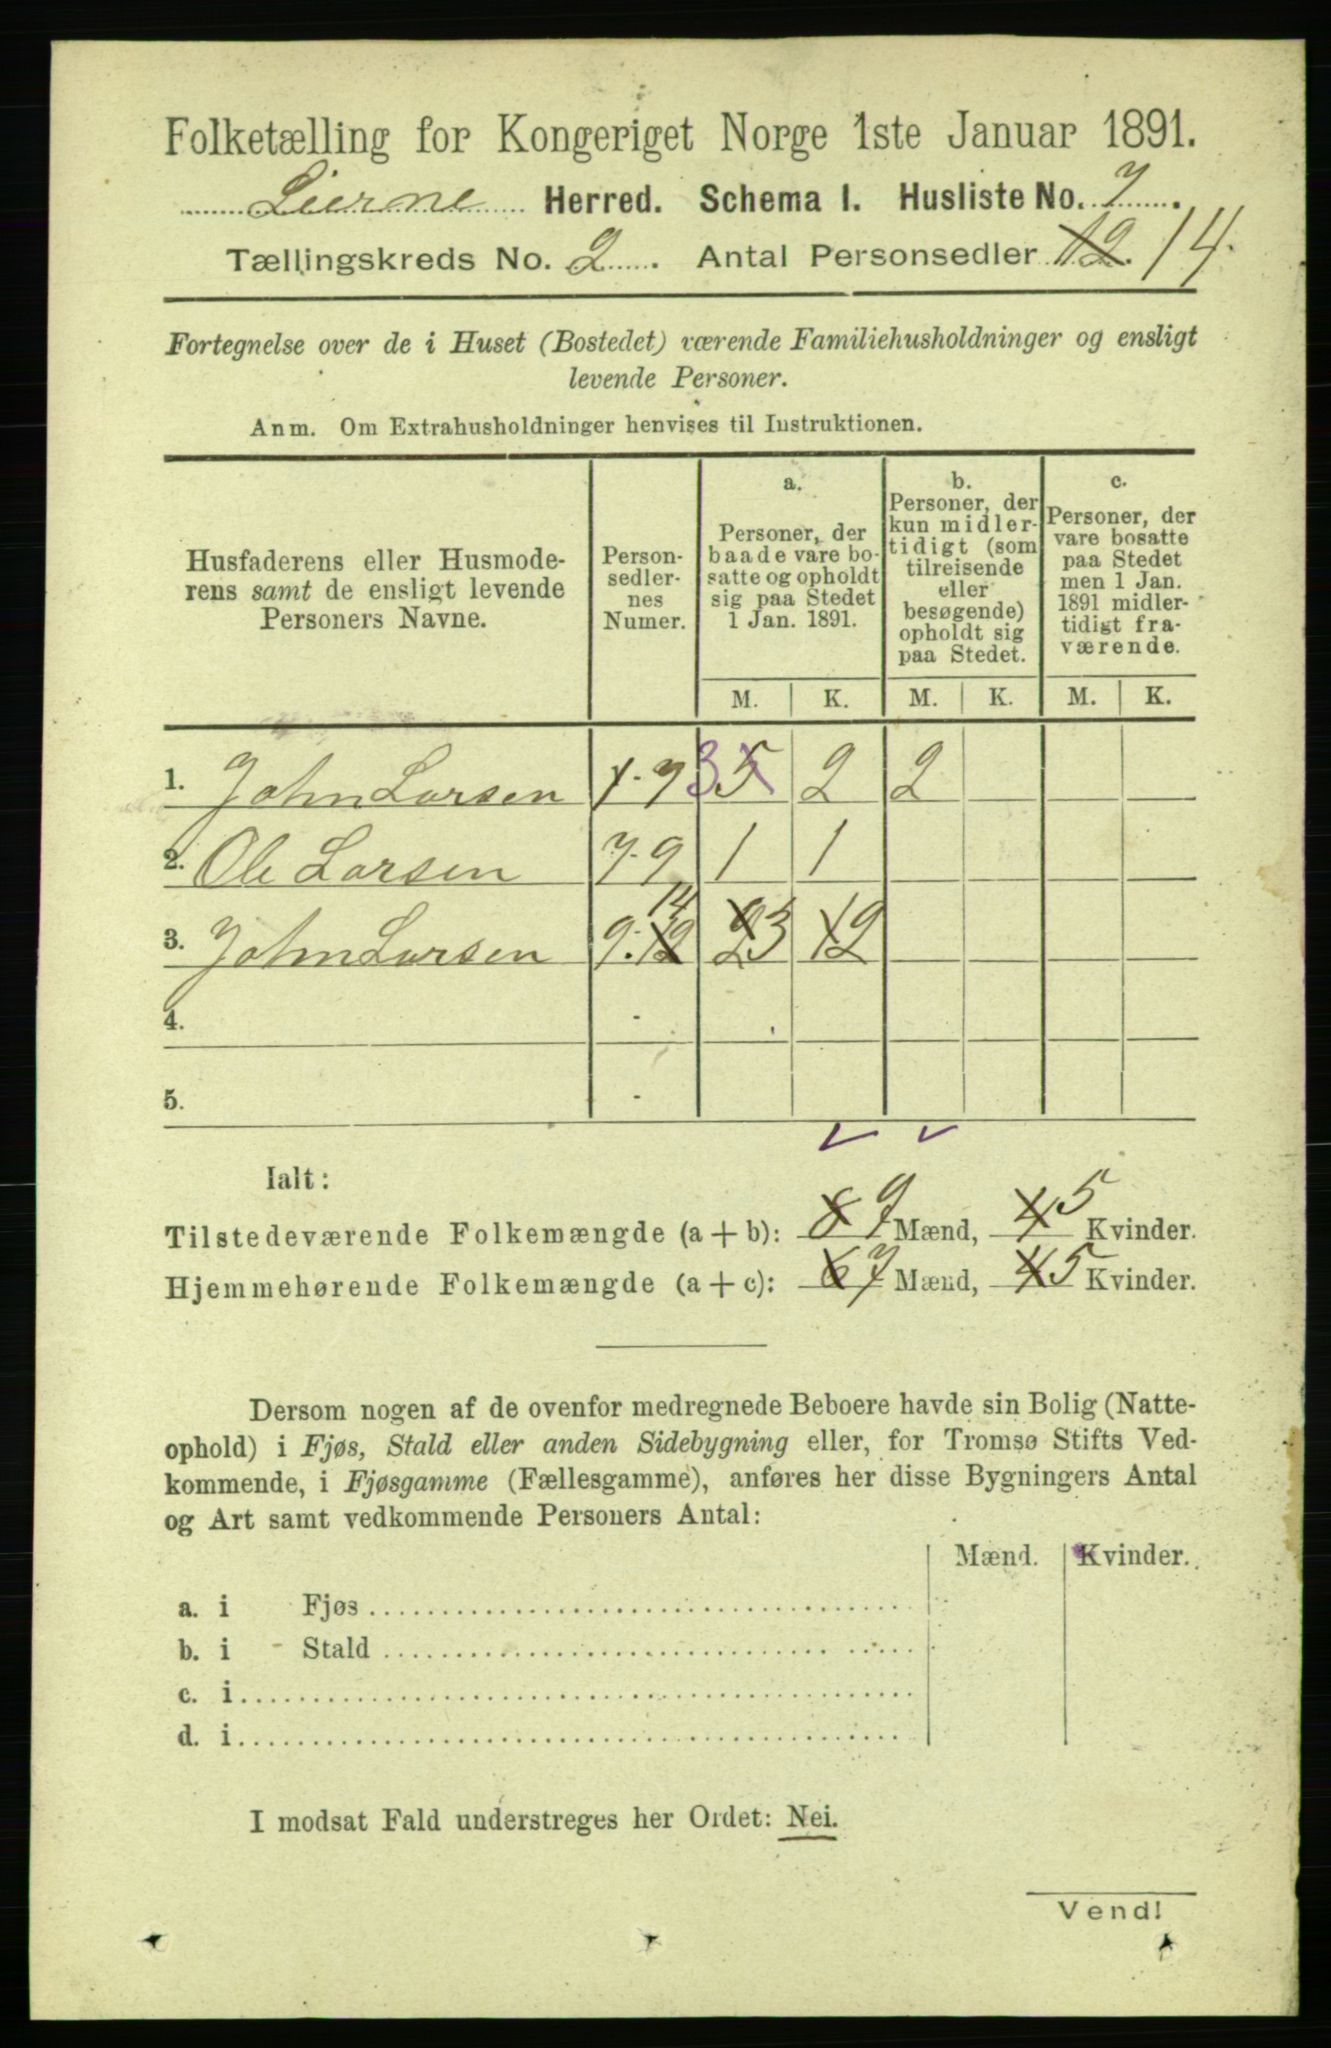 Folketælling for Kongeriget Norge 1ste Januar 1891.
Lierne Herred. Schema I. Husliste No. 7.
Tællingskreds No. 2. Antal Personsedler 12. 14.
Fortegnelse over de i Huset (Bostedet) værende Familiehusholdninger og ensligt
levende Personer.
Anm. Om Extrahusholdninger henvises til Instruktionen.
Husfaderens eller Husmode-
rens samt de ensligt levende
Personers Navne.
Person-
sedler-
nes
Numer.
a.
Personer, der
baade vare bo-
satte og opholdt
sig paa Stedet
1 Jan. 1891.
b.
Personer, der
kun midler-
tidigt (som
tilreisende
eller
besøgende)
opholdt sig
paa Stedet.
c.
Personer, der
vare bosatte
paa Stedet
men 1 Jan.
1891 midler-
tidigt fra-
værende.
M. K. M. K. M. K.
1. John Larsen 1-7 3 5 2 2
2. Ole Larsen 7-9 1 1
3. John Larsen 9-12 14 2 3 1 2
4. -
5. -
Ialt:
Tilstedeværende Folkemængde (a + b): 8 9 Mænd, 4 5 Kvinder.
Hjemmehørende Folkemængde (a + c): 6 7 Mænd, 4 5 Kvinder.
Dersom nogen af de ovenfor medregnede Beboere havde sin Bolig (Natte-
ophold) i Fjøs, Stald eller anden Sidebygning eller, for Tromsø Stifts Ved-
kommende, i Fjøsgamme (Fællesgamme), anføres her disse Bygningers Antal
og Art samt vedkommende Personers Antal:
Mænd. Kvinder.
a. i Fjøs
b. i Stald
c. i
d. i
I modsat Fald understreges her Ordet: Nei.
Vend!